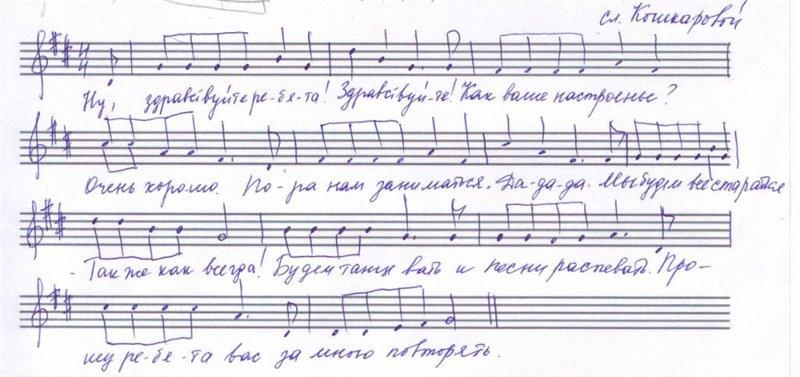 сл. Кошкаровой
Ну, здравствуйте ре-бя-та! Здравствуй-те! Как ваше настроенье?
Очень хорошо. По-ра нам заниматься. Да-да-да. Мы будем все стараться
- Так же как всегда! Будем танцевать и песни распевать. Про-
шу ре-бя-та вас за мною повторять.